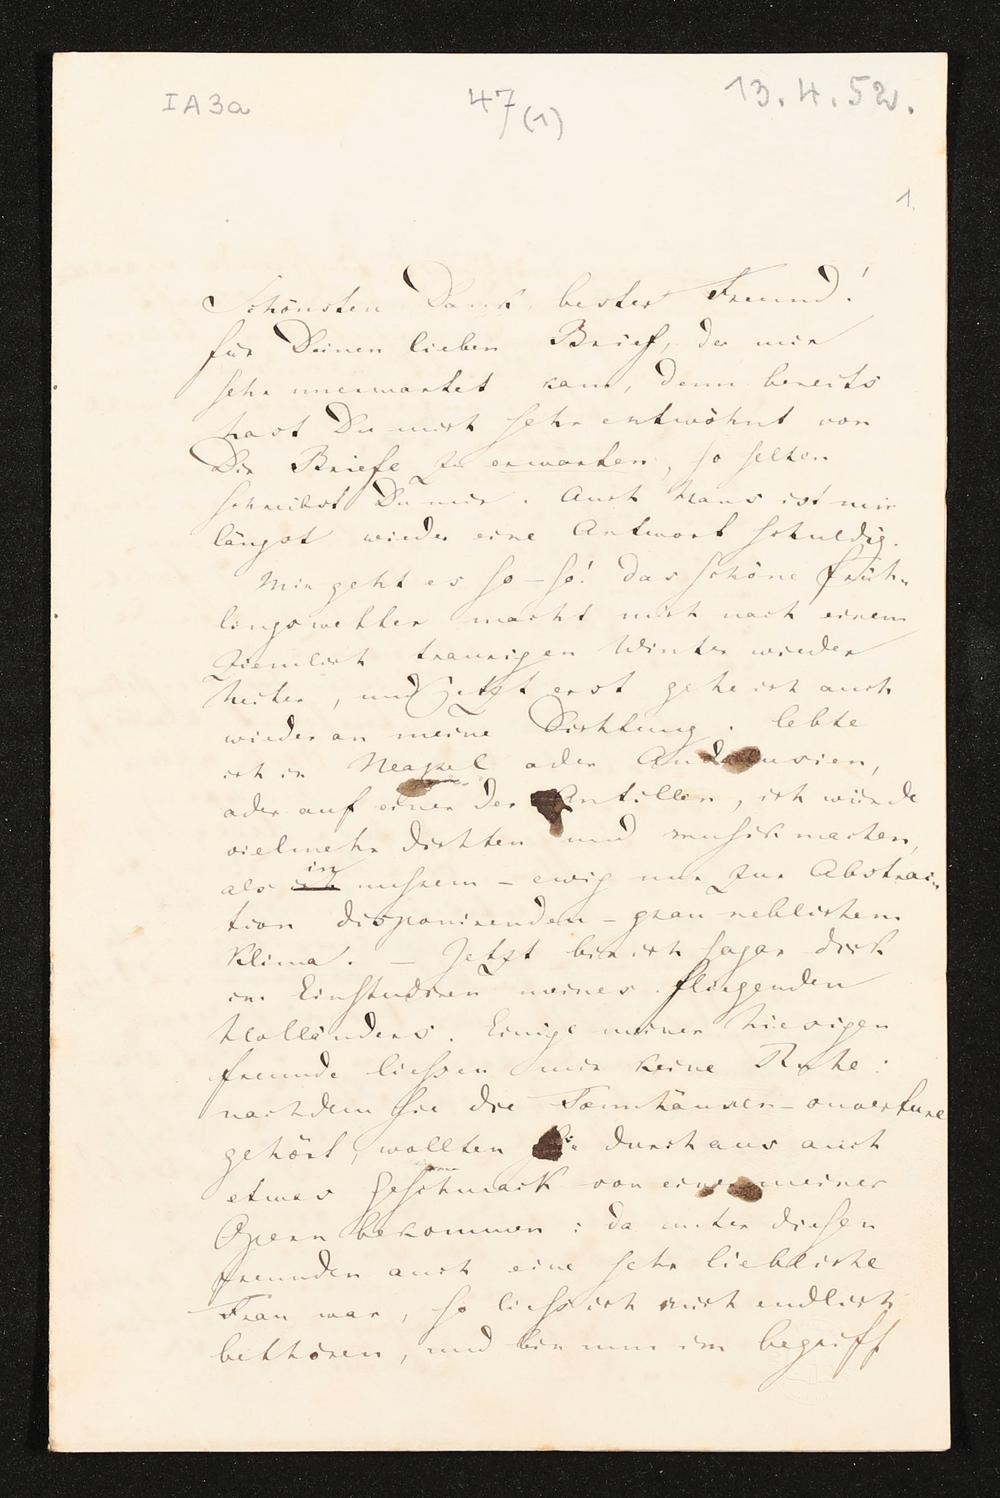 IA3a
47
(1)
13.4.52.
1.
Schönsten Dank, bester Freund!
für Deinen lieben Brief, der mir
sehr unerwartet kam, denn bereits
hast Du mich sehr entwöhnt von
Dir Briefe zu erwarten, so selten
schreibst Du mir. Auch Hans ist mir
längst wieder eine Antwort schuldig.
Mir geht es so – so! das schöne früh-
lingswetter macht mich nach einem
ziemlich traurigen Winter wieder
heiter, und jetzt erst gehe ich auch
wieder an meine Dichtung. lebte
ich in Neapel oder Andalusien,
oder auf einer der Antillen, ich würde
vielmehr dichten und musik machen,
als in unsrem – ewig nur zur Abstrac-
tion disponirenden – grau neblichem
Klima. – Jetzt bin ich sogar dick
im Einstudiren meines fliegenden
Holländers. Einige meiner hiesigen
freunde liessen mir keine Ruhe:
nachdem sie die Tannhäuser-ouverture
gehört, wollten sie durchaus auch
etwas Geschmack von einer meiner
Opern bekommen: da unter diesen
freunden auch eine sehr liebliche
Frau war, so liess ich mich endlich
bethören, und bin nun im begriff